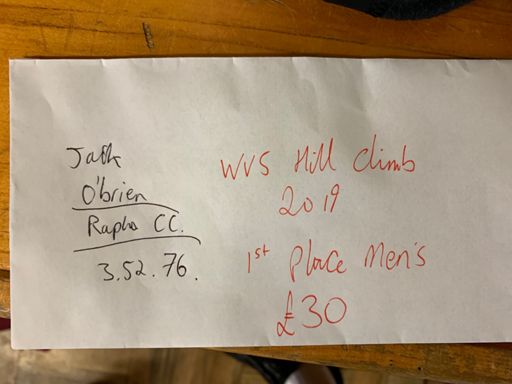 Jack
O'brien
Rapha CC.
3.52.76.
WVS Hill Climb
2019
1st Place Men's
£30